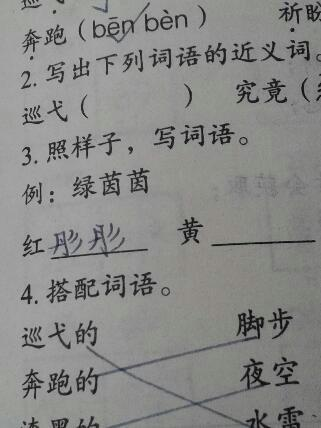 奔跑（bēn bèn） 祈盼
2.写出下列词语的近义词。
巡弋（ ） 究竟（
3.照样子，写词语。
例：绿茵茵
红彤彤 黄
4.搭配词语。
巡弋的 脚步
奔跑的 夜空
漆黑的 水雷